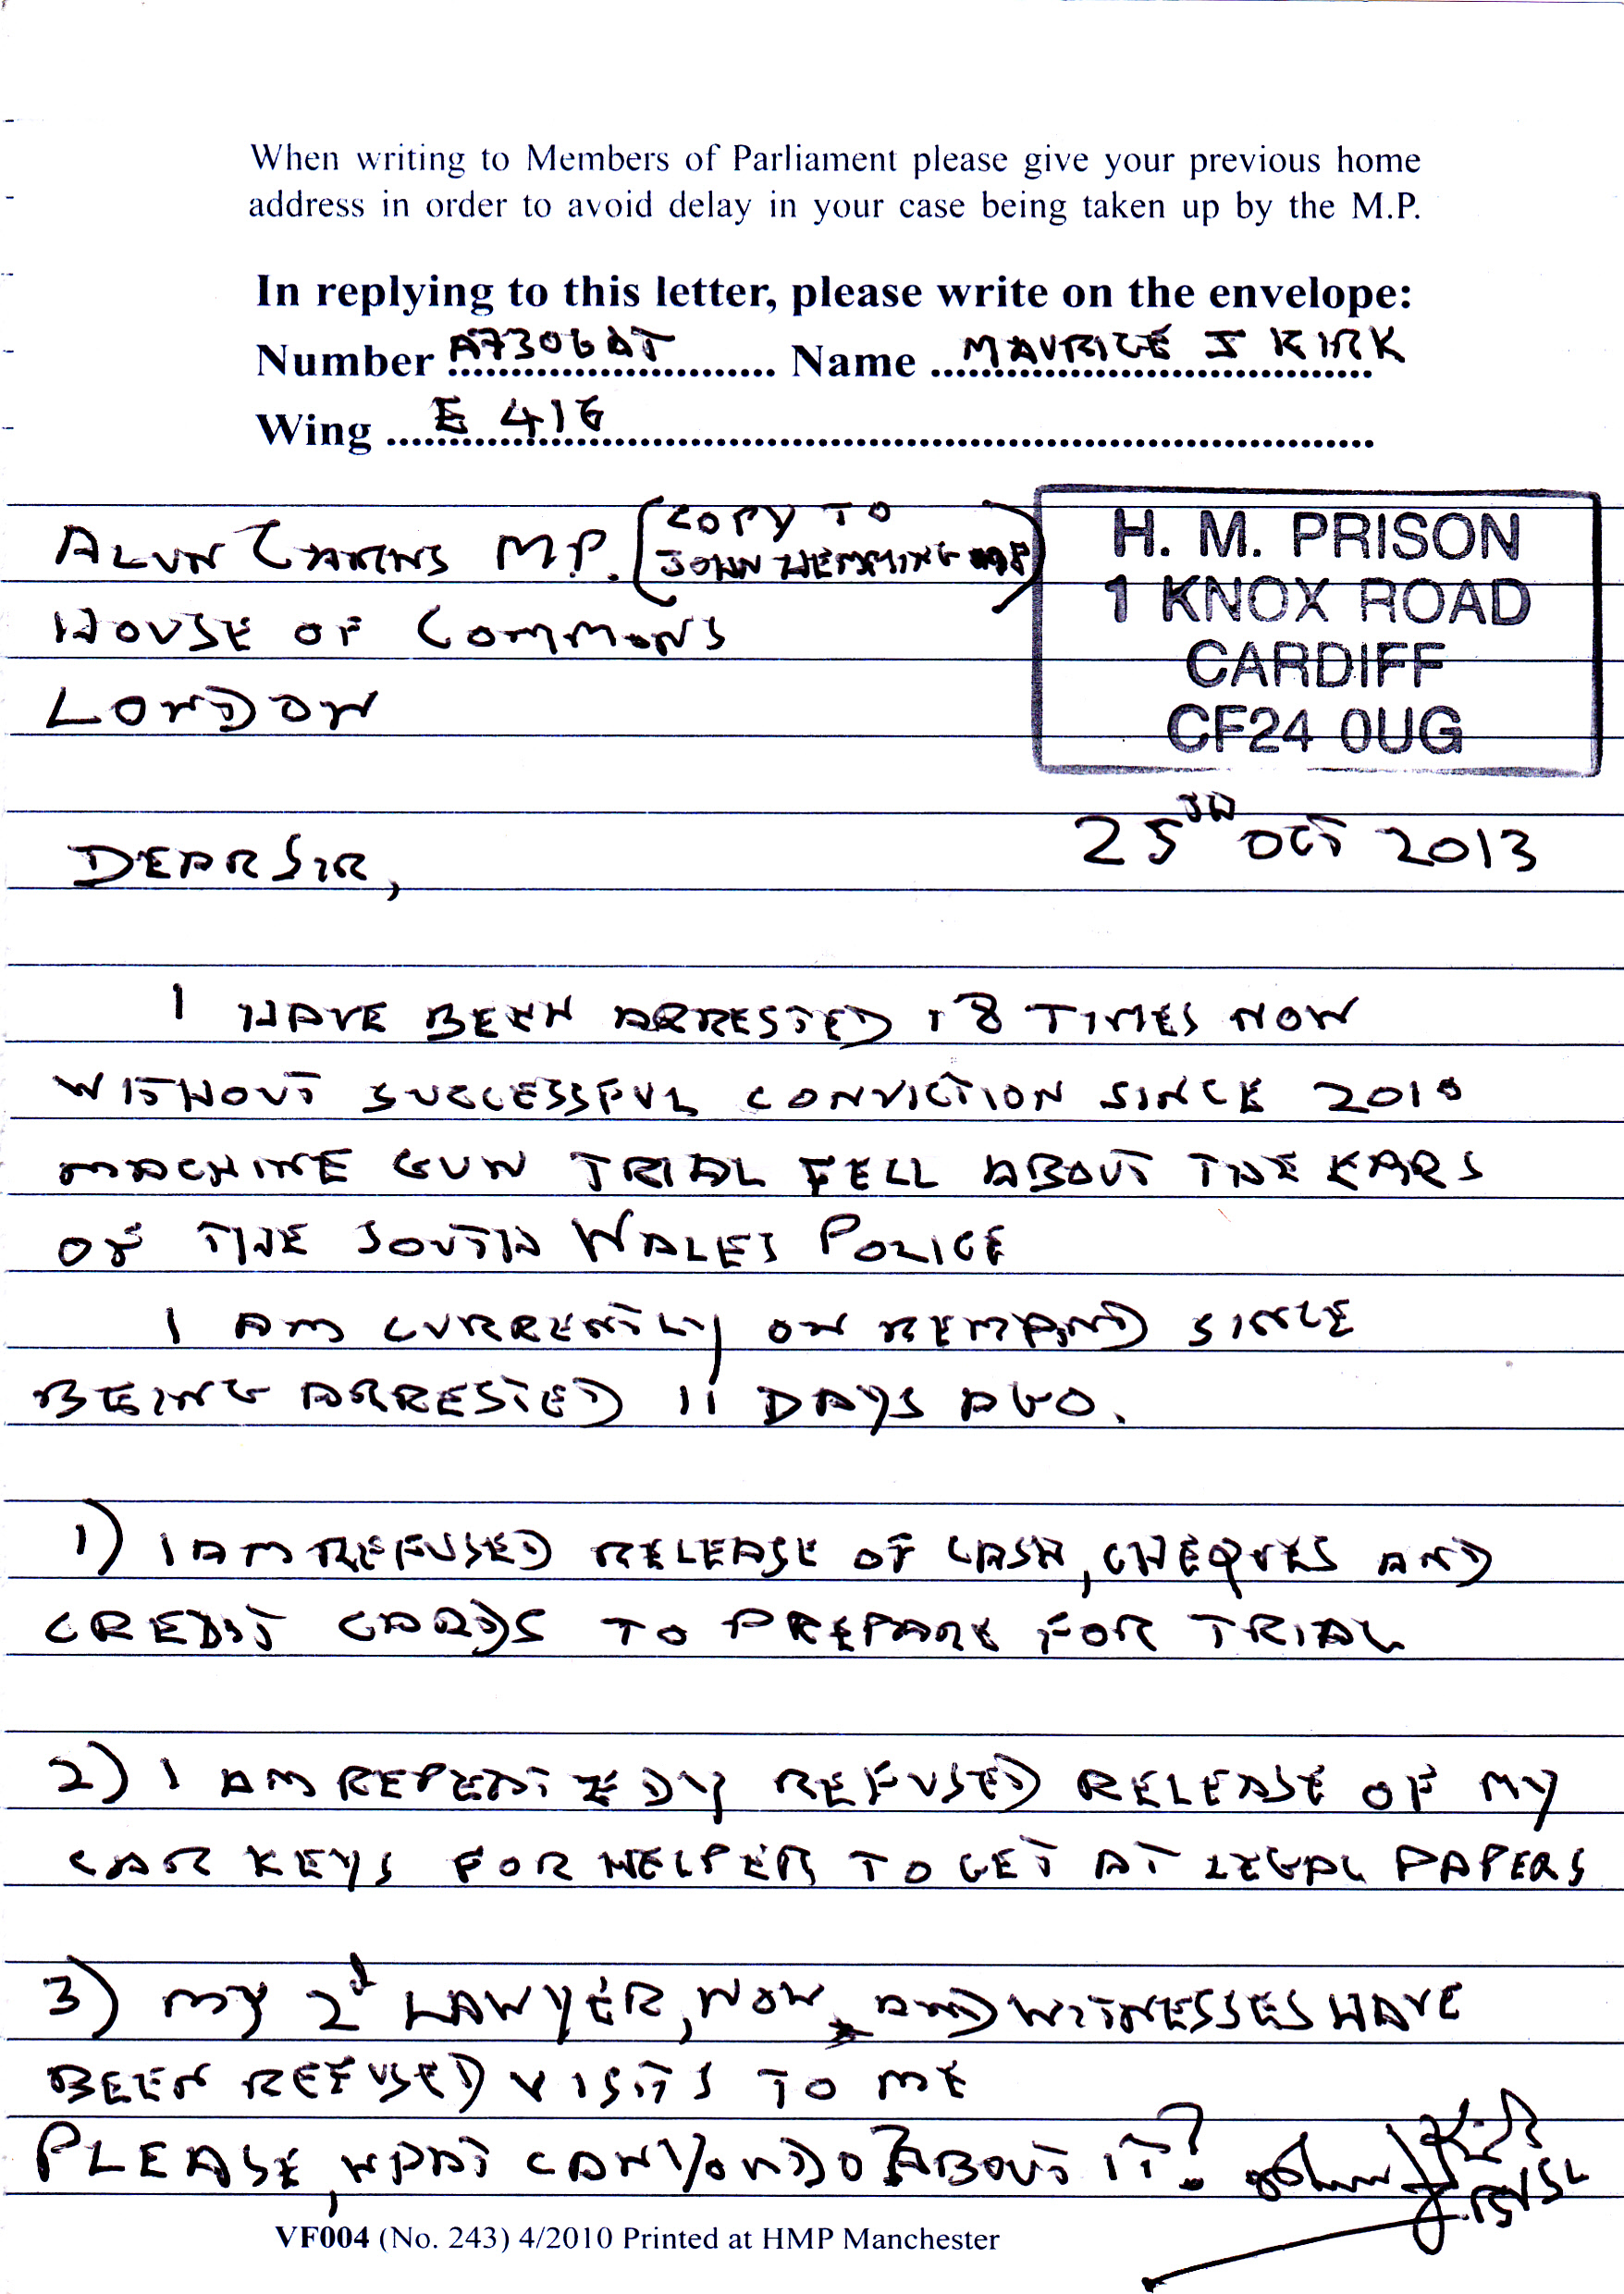 When writing to Members of Parliament please give your previous home
address in order to avoid delay in your case being taken up by the M.P.
In replying to this letter, please write on the envelope:
Number A7306AT Name MAURICE J KIRK
Wing E 416
ALUN CAIRNS M.P. (COPY TO
JOHN HEMMING MP)
HOUSE OF COMMONS
LONDON
H. M. PRISON
1 KNOX ROAD
CARDIFF
CF24 0UG
25TH OCT 2013
DEAR SIR,
I HAVE BEEN ARRESTED 18 TIMES NOW
WITHOUT SUCCESSFUL CONVICTION SINCE 2010
MACHINE GUN TRIAL FELL ABOUT THE EARS
OF THE SOUTH WALES POLICE
I AM CURRENTLY ON REMAND SINCE
BEING ARRESTED 11 DAYS AGO.
1) I AM REFUSED RELEASE OF CASH, CHEQUES AND
CREDIT CARDS TO PREPARE FOR TRIAL
2) I AM REPEATEDLY REFUSED RELEASE OF MY
CAR KEYS FOR HELPER TO GET AT LEGAL PAPERS
3) MY 2d LAWYER, NOW, AND WITNESSES HAVE
BEEN REFUSED VISITS TO ME
PLEASE, WHAT CAN YOU DO ABOUT IT?
VF004 (No. 243) 4/2010 Printed at HMP Manchester